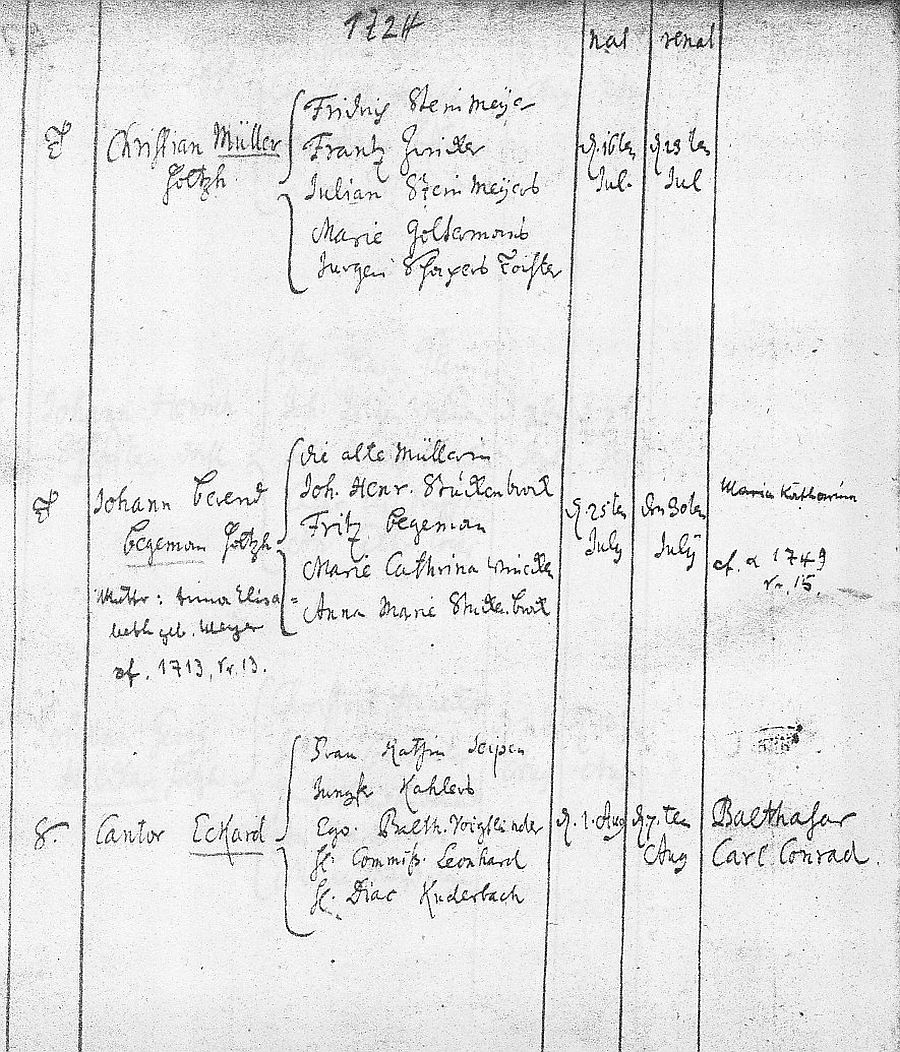 1724
nat renat
Christian Müller
Holtzh
Fridrig Steinmeyer
Frantz
Julian Steinmeyers
Marie Goltermans
Jurgen
d. 16ten
Jul.
d 23ten
Jul
Johann Berend
Begeman Holtzh
Mutter: Anna Elisa=
beth geb. Meyer
cf. 1713, Nr. 13.
die alte Müllerin
Joh. Henr. Stuckenbrock
Fritz Begeman
Marie Cathrina
Anna Marie Stuckenbrock
d. 25ten
July
den 30ten
July
Maria Katharina
cf. a 1749
Nr. 15.
8. Cantor Eckard
Frau Kathrin
Jungfr Kahlers
Ego. Balth. Voigtländer
H. Commiss. Leonhard
H. Diac Kuderbach
d. 1. Aug
d 7. ten
Aug
Balthasar
Carl Conrad.